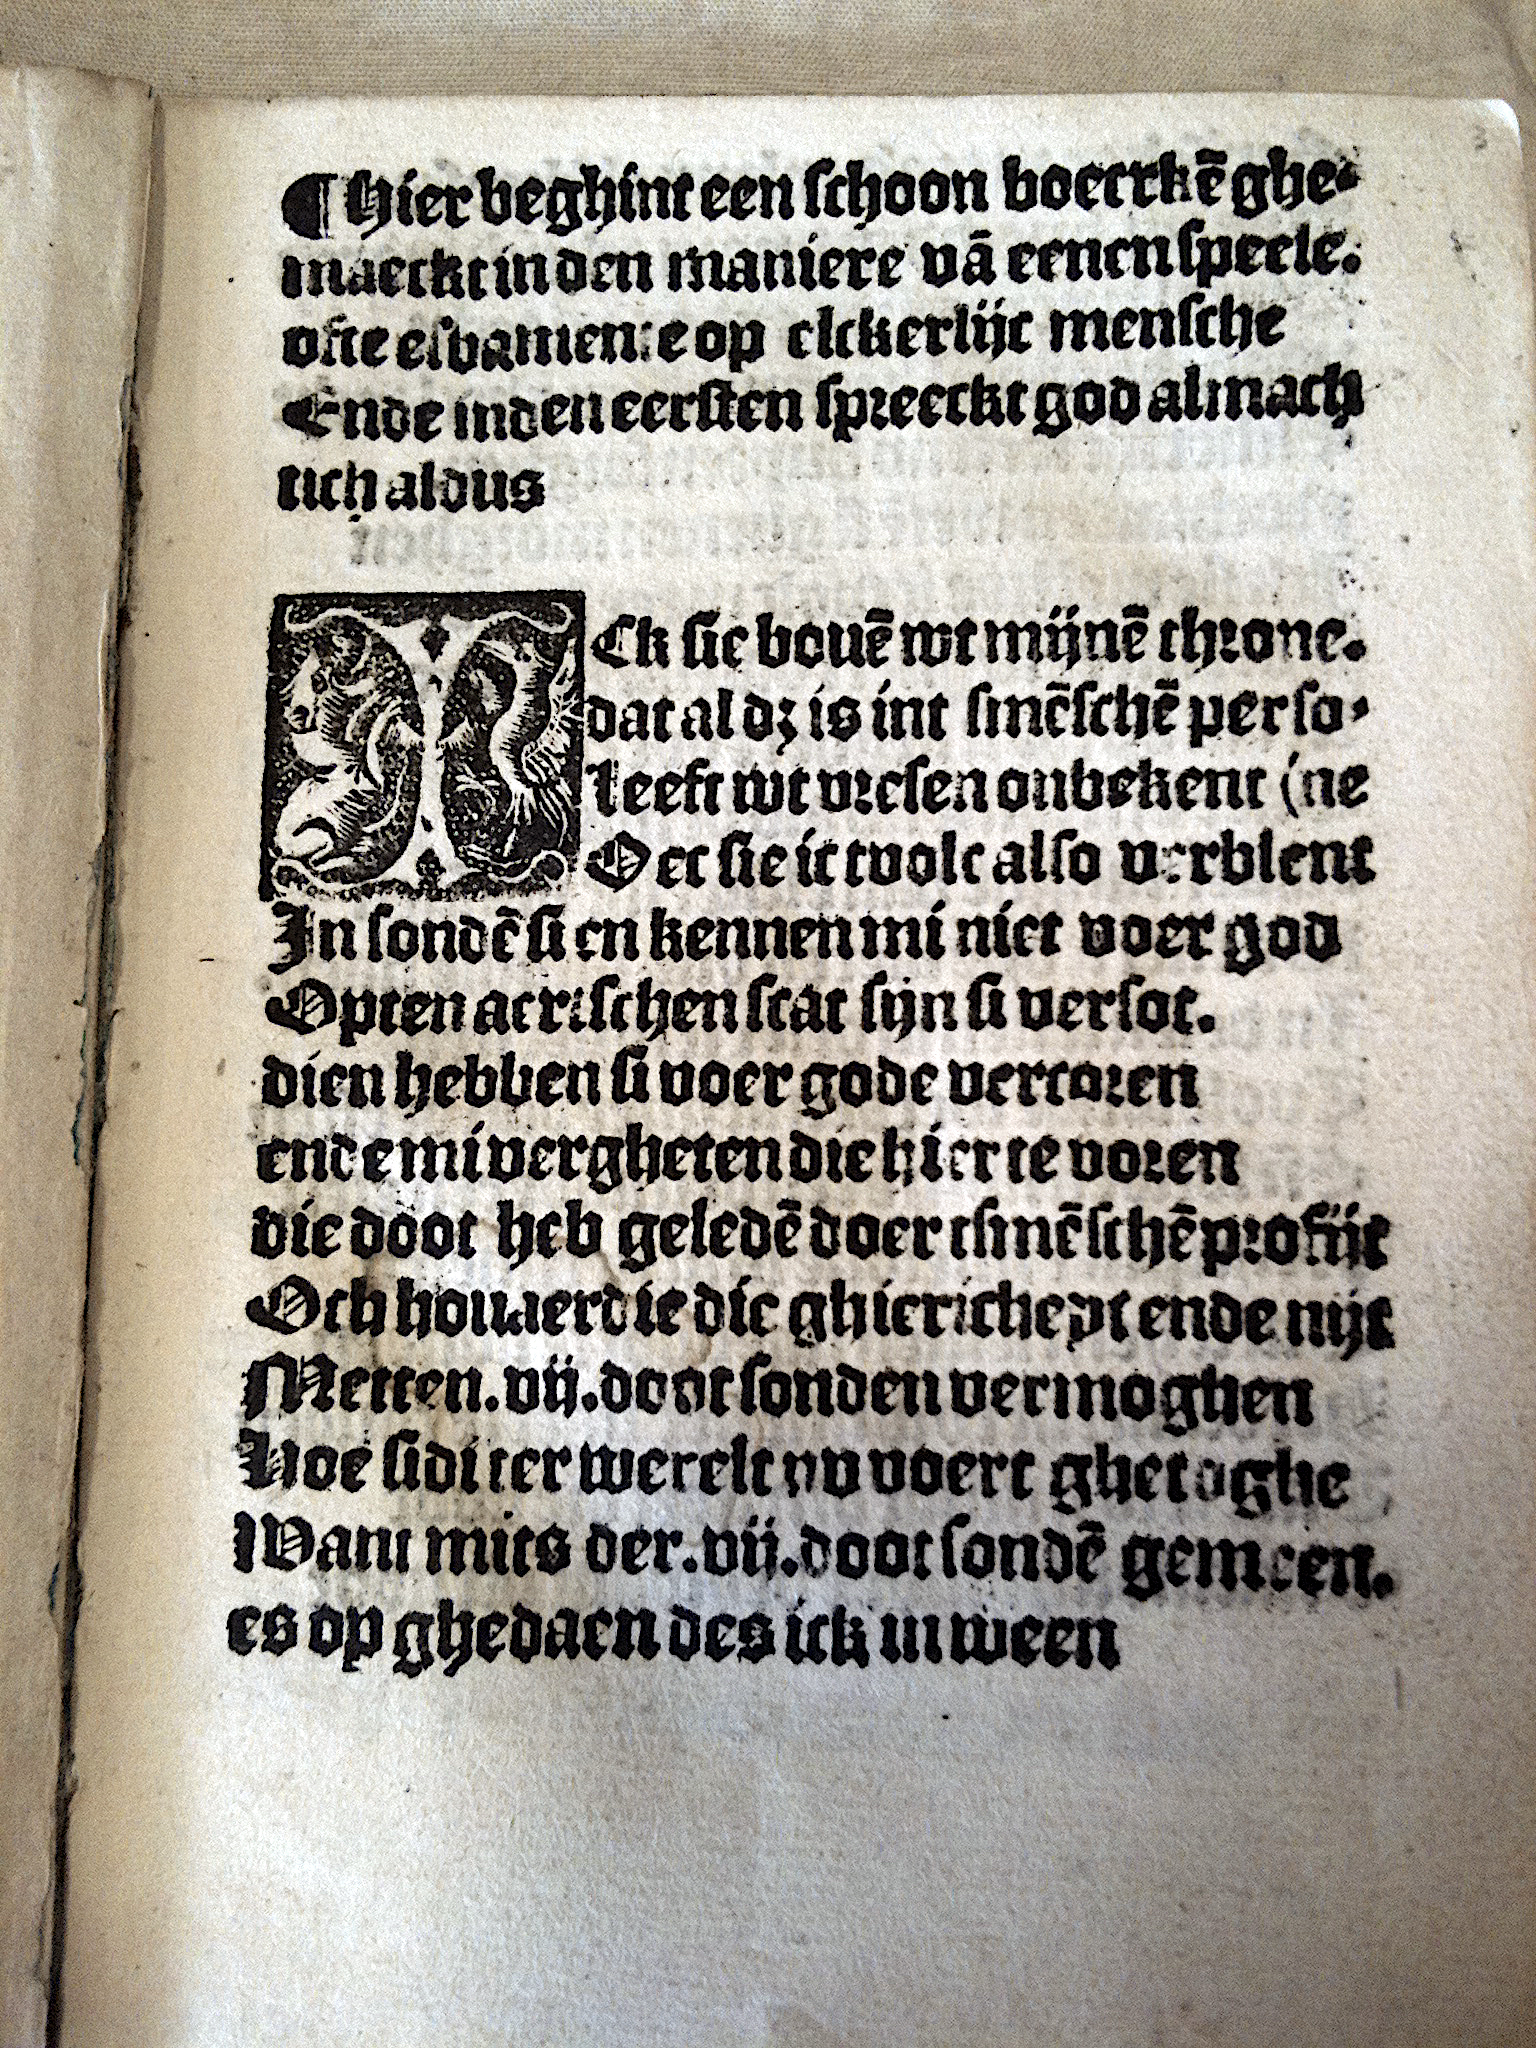 ¶ Hier beghint een schoon boecrkē ghe-
maeckt in den maniere vā eenen speele.
ofte esbamente op elckerlijc mensche
Ende inden eersten spreeckt god almach
tich aldus
ICk sie bouē wt mijnē throne.
dat al dz is int smēschē perso-
Leeft wt vresen onbekent (ne
Oec sie ic tvolc also verblent
In sondē si en kennen mi niet voer god
Opten aertschen scat sijn si versot.
dien hebben si voer gode vercoren
ende mi vergheten die hier te voren
die doot heb geledē doer tsmēschē profijt
Och houuerdie die ghiericheyt ende nijt
Metten .vij. doot sonden vermoghen
Hoe sidi ter werelt nv voert ghetoghe
Want mits der .vij. doot sondē gemeen.
es op ghedaen des ick in ween